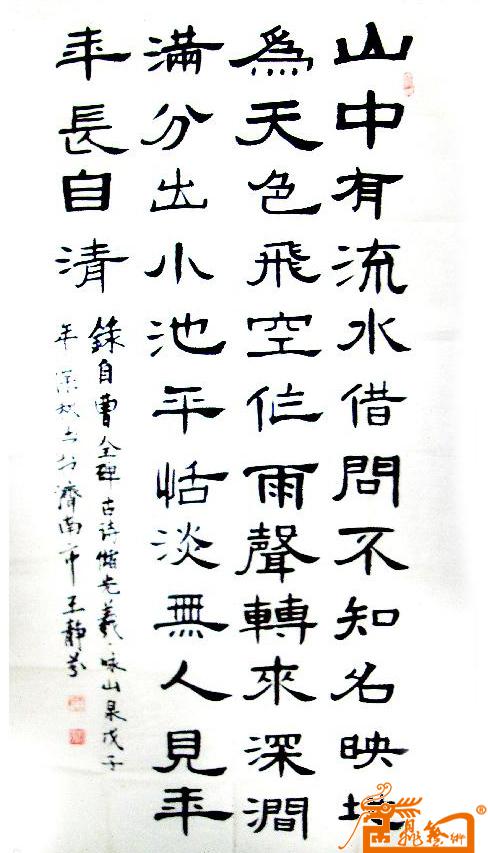 山中有流水借問不知名映地
為天色飛空作雨聲轉來深澗
滿分出小池平恬淡無人見年
年長自清
錄自曹全碑古诗儲光羲咏山泉戊子
年深秋书於濟南市王静芬